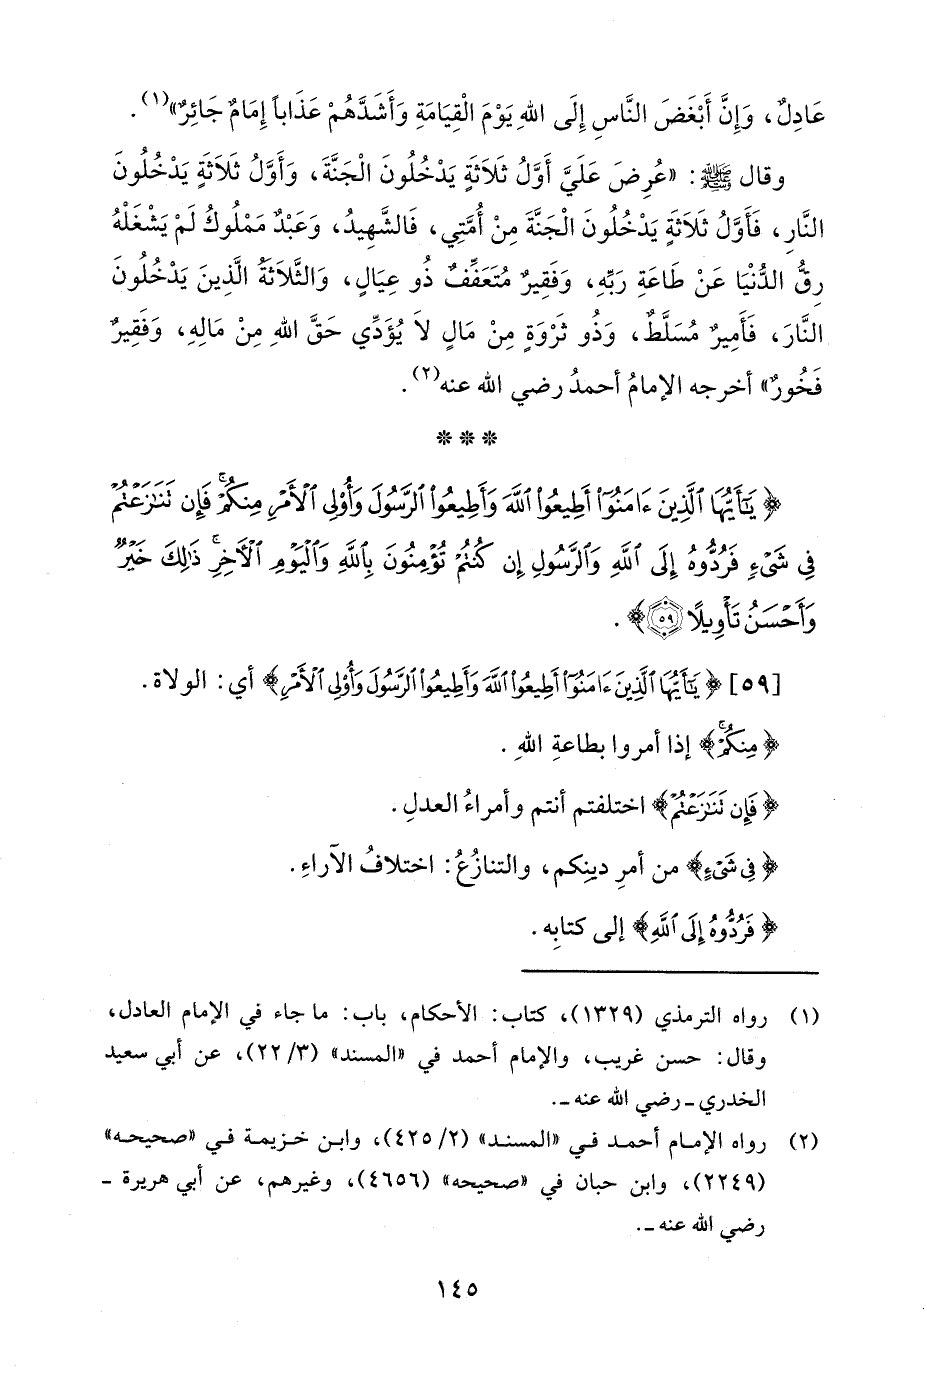 عَادِلٌ، وَإِنَّ أَبْغَضَ النَّاسِ إِلَى اللهِ يَوْمَ الْقِيَامَةِ وَأَشَدَّهُمْ عَذَاباً إِمَامٌ جَائِرٌ»(١).
وقال ﷺ: «عُرِضَ عَلَيَّ أَوَّلُ ثَلَاثَةٍ يَدْخُلُونَ الْجَنَّةَ، وَأَوَّلُ ثَلَاثَةٍ يَدْخُلُونَ
النَّارِ، فَأَوَّلُ ثَلَاثَةٍ يَدْخُلُونَ الْجَنَّةَ مِنْ أُمَّتِي، فَالشَّهِيدُ، وَعَبْدٌ مَمْلُوكٌ لَمْ يَشْغَلْهُ
رِقُّ الدُّنْيَا عَنْ طَاعَةِ رَبِّهِ، وَفَقِيرٌ مُتَعَفِّفٌ ذُو عِيَالٍ، وَالثَّلَاثَةُ الَّذِينَ يَدْخُلُونَ
النَّارَ، فَأَمِيرٌ مُسَلَّطٌ، وَذُو ثَرْوَةٍ مِنْ مَالٍ لاَ يُؤَدِّي حَقَّ اللهِ مِنْ مَالِهِ، وَفَقِيرٌ
فَخُورٌ» أخرجه الإمامُ أحمدُ رضي الله عنه(٢).
* * *
﴿يَٰٓأَيُّهَا ٱلَّذِينَ ءَامَنُوٓا۟ أَطِيعُوا۟ ٱللَّهَ وَأَطِيعُوا۟ ٱلرَّسُولَ وَأُو۟لِى ٱلْأَمْرِ مِنكُمْ ۖ فَإِن تَنَٰزَعْتُمْ
فِى شَىْءٍ فَرُدُّوهُ إِلَى ٱللَّهِ وَٱلرَّسُولِ إِن كُنتُمْ تُؤْمِنُونَ بِٱللَّهِ وَٱلْيَوْمِ ٱلْءَاخِرِ ۚ ذَٰلِكَ خَيْرٌ
وَأَحْسَنُ تَأْوِيلًا ٥٩﴾.
[٥٩] ﴿يَٰٓأَيُّهَا ٱلَّذِينَ ءَامَنُوٓا۟ أَطِيعُوا۟ ٱللَّهَ وَأَطِيعُوا۟ ٱلرَّسُولَ وَأُو۟لِى ٱلْأَمْرِ﴾ أي: الولاة.
﴿مِنكُمْ﴾ إذا أمروا بطاعةِ اللهِ.
﴿فَإِن تَنَٰزَعْتُمْ﴾ اختلفتم أنتم وأمراءُ العدلِ.
﴿فِى شَىْءٍ﴾ من أمرِ دينِكم، والتنازُعُ: اختلافُ الآراءِ.
﴿فَرُدُّوهُ إِلَى ٱللَّهِ﴾ إلى كتابِه.
(١) رواه الترمذي (١٣٢٩)، كتاب: الأحكام، باب: ما جاء في الإمام العادل،
وقال: حسن غريب، والإمام أحمد في «المسند» (٣/ ٢٢)، عن أبي سعيد
الخدري ـ رضي الله عنه ـ.
(٢) رواه الإمام أحمد في «المسند» (٢/ ٤٢٥)، وابن خزيمة في «صحيحه»
(٢٢٤٩)، وابن حبان في «صحيحه» (٤٦٥٦)، وغيرهم، عن أبي هريرة ـ
رضي الله عنه ـ.
١٤٥